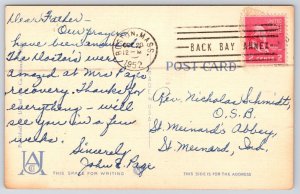 Dear Father -
Our prayers
have been answered
The doctors were
amazed at Mrs Page
recovery. Thanks for
everything - will
see you in a few
weeks.
Sincerely
John E. Page
BOSTON, MASS.
12 - M
1952
BACK BAY ANNEX
POST CARD
Rev. Nicholas Schmidt,
O.S.B.
St Meinard's Abbey,
St Meinard, Ind.
THIS SPACE FOR WRITING
THIS SIDE IS FOR THE ADDRESS